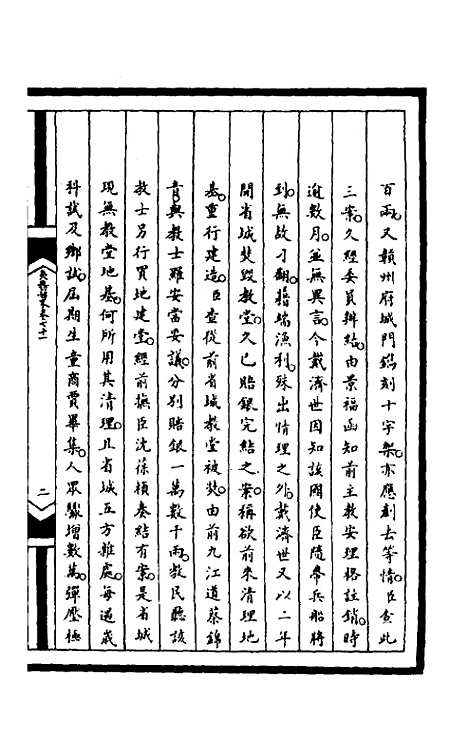 百兩。又贛州府城門鐫刻十字架。亦應剷去等情。臣查此
三案。久經委員辦結。由景福函知前主教安理格註銷。時
逾數月。並無異言。今戴濟世因知該國使臣隨帶兵船將
到。無故刁翻。藉端漁利。殊出情理之外。戴濟世又以二年
間省城焚毀教堂。久已賠銀完結之案。稱欲前來清理地
基。重行建造。臣查從前省城教堂被焚。由前九江道蔡錦
青與教士羅安當妥議。分別賠銀一萬數千兩。教民聽該
教士另行買地建堂。經前撫臣沈葆楨奏結有案。是省城
現無教堂地基。何所用其清理。且省城五方雜處。每遇歲
科試及鄉試屆期生童商賈畢集。人眾驟增數萬。彈壓極
二